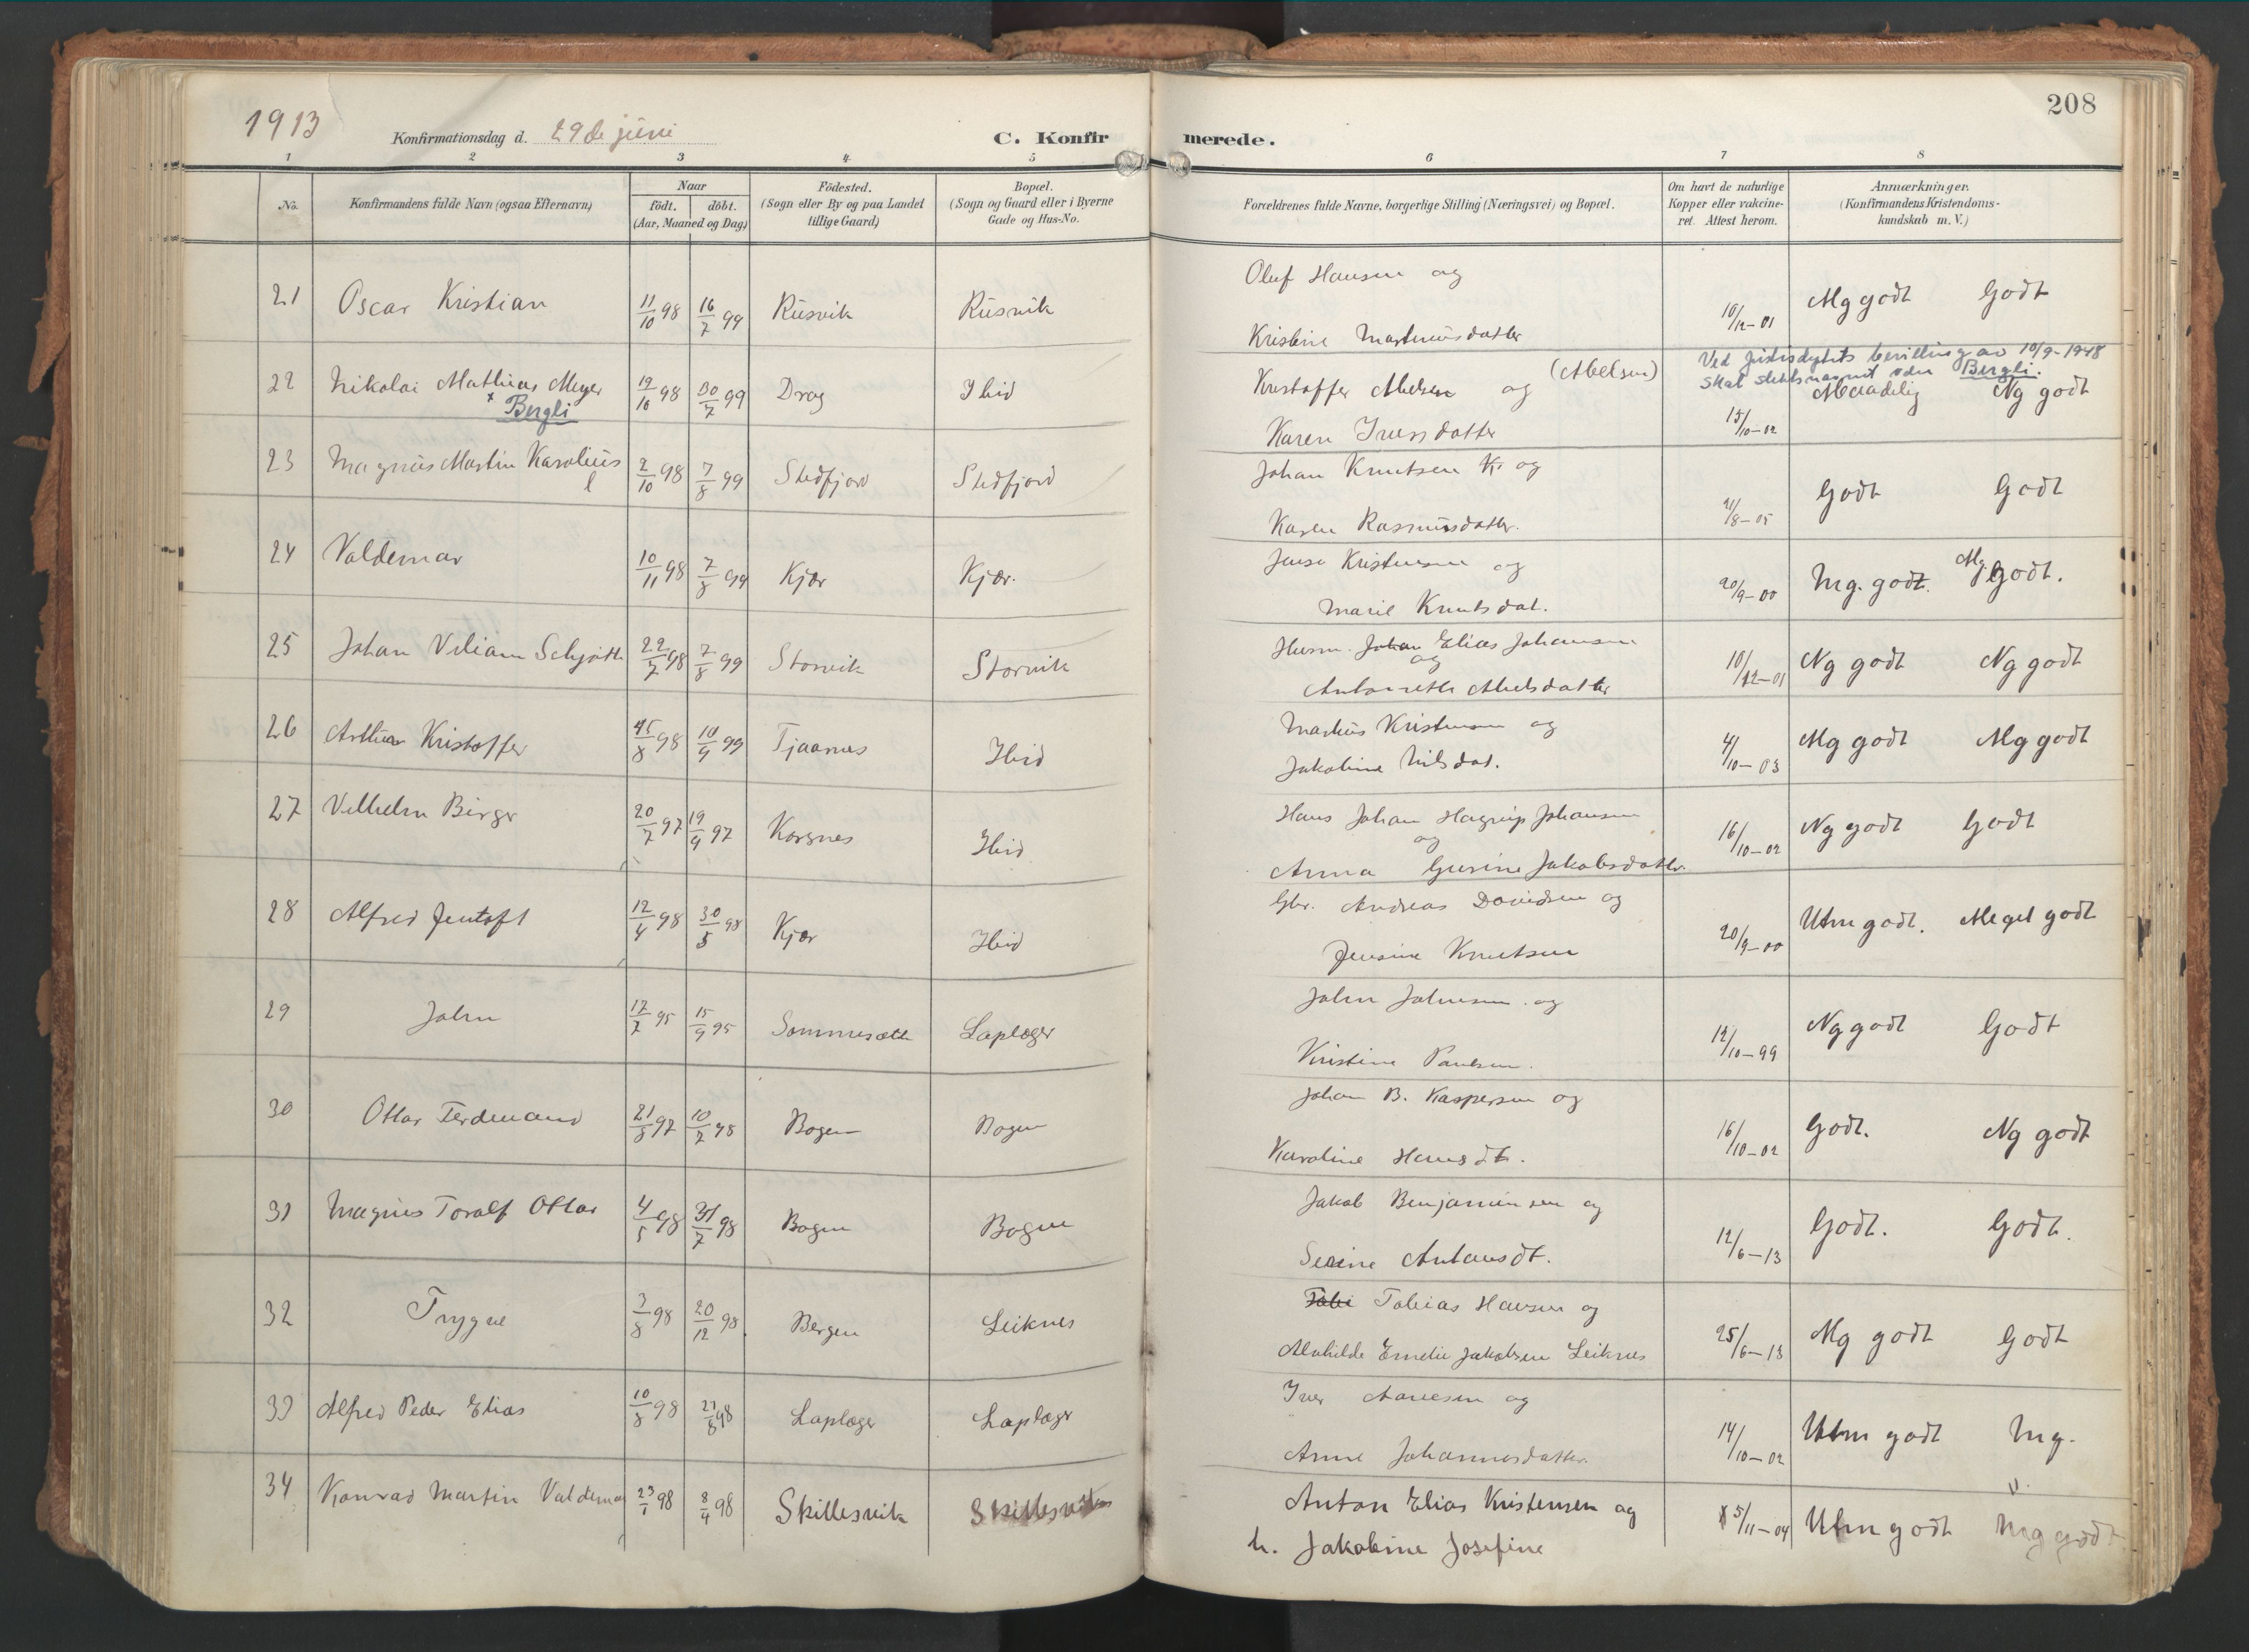 1913
Konfirmationsdag d. 29de juni
C. Konfirmerede.
208
1 2 3 4 5 6 7 8
No.
Konfirmandens fulde Navn (ogsaa Efternavn)
Naar
födt. döbt.
(Aar, Maaned og Dag)
Födested.
(Sogn eller By og paa Landet
tillige Gaard)
Bopæl.
(Sogn og Gaard eller i Byerne
Gade og Hus-No.
Forældrenes fulde Navne, borgerlige Stilling (Næringsvei) og Bopæl.
Om havt de naturlige
Kopper eller vakcine-
ret. Attest herom.
Anmærkninger.
(Konfirmandens Kristendoms-
kundskab m. V.)
21 Oscar Kristian 11/10 98 16/7 99 Rusvik Rusvik Oluf Hansen og
Kristine Martinusdatter 10/12-01 Mg godt Godt
22 Nikolai Mathias Meyer 19/10 98 30/7 99 Drag Ibid Kristoffer Abelsen og (Abelsen)
x Bergli
Karen Iversdatter 15/10-02 Maadelig Ng godt
Ved bevilling av 10/9-1948
skal Bergli.
23 Magnus Martin Karolius 2/10 98 7/8 99 Stedfjord Stedfjord Johan Knutsen K. og
Karen Rasmusdatter. 21/8-05 Godt Godt
24 Valdemar 10/11 98 7/8 99 Kjær Kjær. Jens Kristensen og
Marie Knutsdat. 20/9-00 Mg. godt. Mg godt.
25 Johan Viliam Schjøth 22/7 98 7/8 99 Storvik Storvik Husm. Johan Elias Johansen
og
Antonette Abelsdatter 10/12-01 Ng godt Ng godt
26 Arthur Kristoffer 15/8 98 10/9 99 Tjaarnes Ibid Markus Kristensen og
Jakobine Nilsdat. 4/10-03 Mg godt Mg godt
27 Vilhelm Birger 20/7 97 19/9 97 Korsnes Ibid Hans Johan Hagrup Johansen
og
Anna Gurine Jakobsdatter. 16/10-02 Ng godt Godt
28 Alfred Jentoft 12/4 98 30/5 98 Kjær Ibid Gbr. Andreas Davidsen og
Jensine Knutsen 20/9-00 Utm godt. Meget godt
29 John 17/7 95 15/9 95 Sommersæth Laplæger John Johnsen og
Kristine Paulsen. 12/10-99 Ng godt Godt
30 Ottar Ferdinand 21/8 97 10/7 98 Bogen Bogen Johan B. Kaspersen og
Karoline Hansdt. 16/10-02 Godt. Ng godt
31 Magnus Toralf Ottar 4/5 98 31/7 98 Bogen Bogen Jakob Benjaminsen og
Serine Antonsdt. 12/6-13 Godt. Godt.
32 Trygve 3/8 98 20/12 98. Bergen Leiknes Tobi Tobias Hansen og
Mathilde Emelie Jakobsen Leiknes 25/6-13 Mg godt Godt
33 Alfred Peder Elias 10/8 98 21/8 98 Laplæger Laplæger Iver Aanesen og
Anne Johannesdatter. 14/10-02 Utm godt Mg.
34 Konrad Martin Valdemar 23/1 98 8/4 98 Skillesvik Skillesvik Anton Elias Kristensen og
h. Jakobine Josefine 5/11-04 Utm godt Mg godt